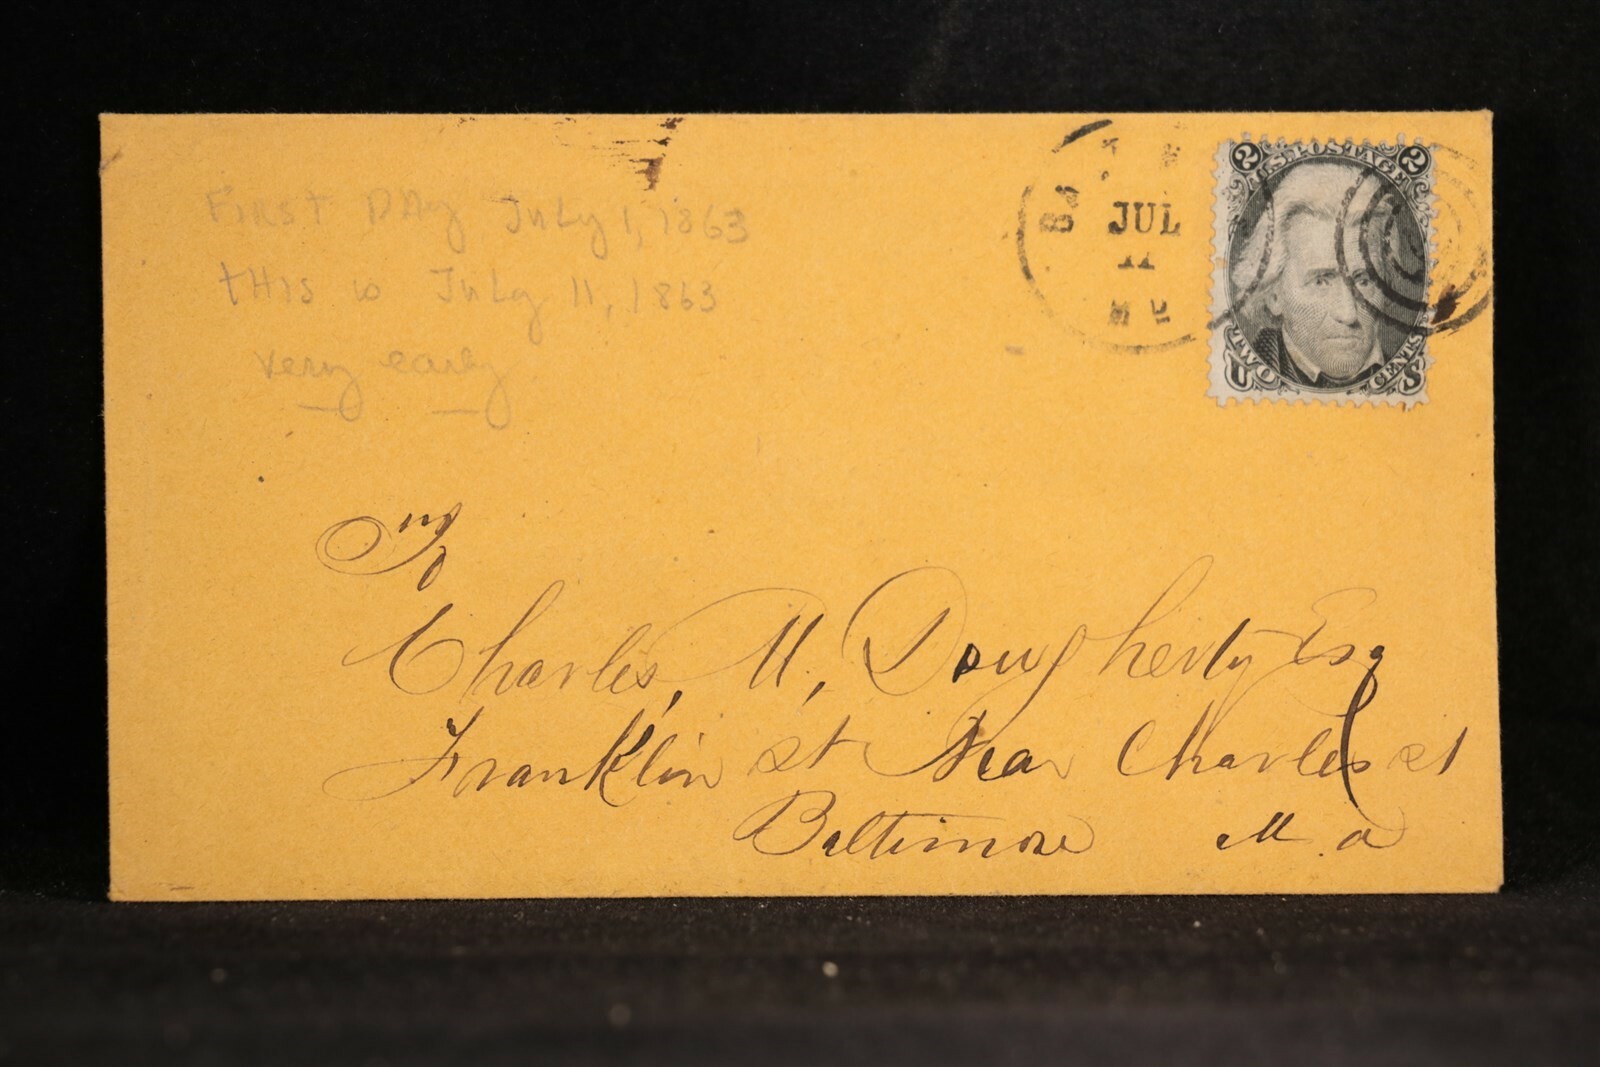 First Day July 1, 1863
this is July 11, 1863
very early
JUL
11
2 U.S. POSTAGE 2
TWO CENTS
U S
To
Charles, M, Dougherty Esq
Franklin st Near Charles st
Baltimore M.d